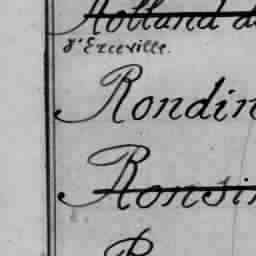 Holland d
d'Erceville.
Rondin
Ronsin
R